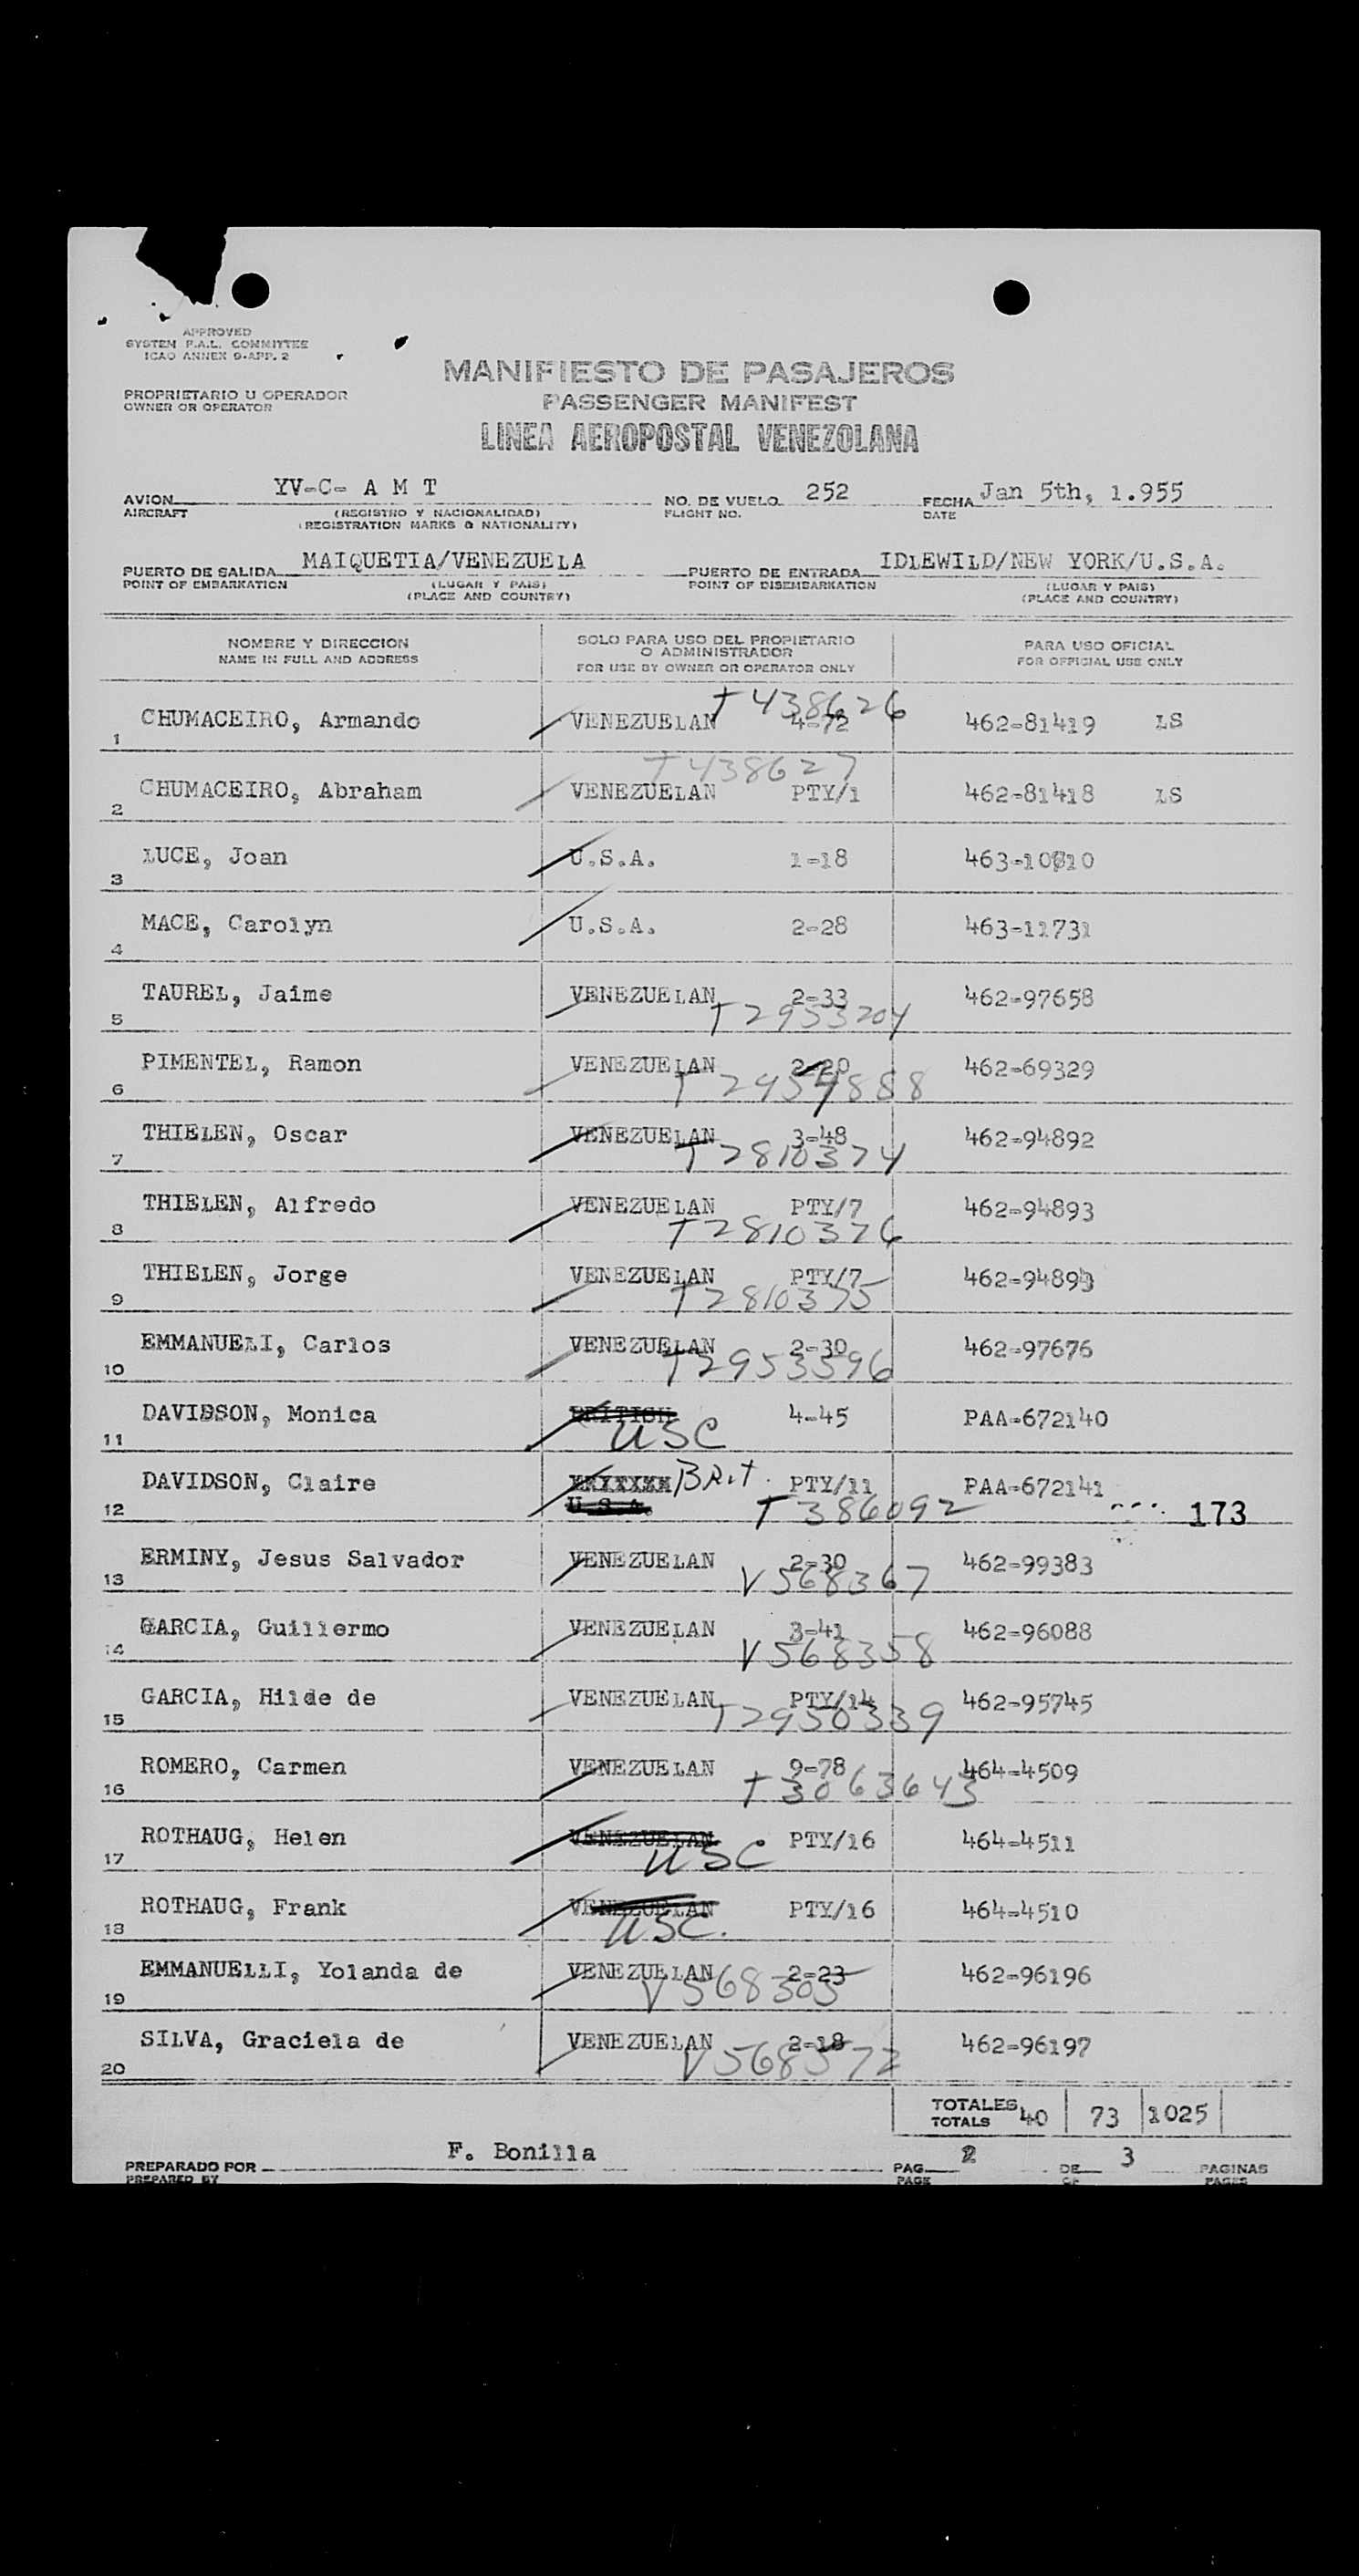 APPROVED
SYSTEM P.A.L. COMMITTEE
ICAO ANNEX 9-APP. 2
PROPRIETARIO U OPERADOR
OWNER OR OPERATOR
MANIFIESTO DE PASAJEROS
PASSENGER MANIFEST
LINEA AEROPOSTAL VENEZOLANA
AVION YV-C- A M T NO. DE VUELO 252 FECHA Jan 5th, 1.955
AIRCRAFT (REGISTRO Y NACIONALIDAD) FLIGHT NO. DATE
(REGISTRATION MARKS & NATIONALITY)
PUERTO DE SALIDA MAIQUETIA/VENEZUELA PUERTO DE ENTRADA IDLEWILD/NEW YORK/U.S.A.
POINT OF EMBARKATION (LUGAR Y PAIS) POINT OF DISEMBARKATION (LUGAR Y PAIS)
(PLACE AND COUNTRY) (PLACE AND COUNTRY)
NOMBRE Y DIRECCION SOLO PARA USO DEL PROPIETARIO O ADMINISTRADOR PARA USO OFICIAL
NAME IN FULL AND ADDRESS FOR USE BY OWNER OR OPERATOR ONLY FOR OFFICIAL USE ONLY
T438626
1 CHUMACEIRO, Armando VENEZUELAN 4-72 462-81419 LS
T438627
2 CHUMACEIRO, Abraham VENEZUELAN PTY/1 462-81418 LS
3 LUCE, Joan U.S.A. 1-18 
4 MACE, Carolyn U.S.A. 2-28 463-11731
5 TAUREL, Jaime VENEZUELAN 2-33 462-97658
T2953204
6 PIMENTEL, Ramon VENEZUELAN 2-20 462-69329
7 THIELEN, Oscar VENEZUELAN 3-48 462-94892
T2810374
8 THIELEN, Alfredo VENEZUELAN PTY/7 462-94893
T2810376
9 THIELEN, Jorge VENEZUELAN PTY/7
T2810375
10 EMMANUELI, Carlos VENEZUELAN 2-30 462-97676
T2953596
11 DAVIDSON, Monica BRITISH 4-45 PAA-672140
USC
12 DAVIDSON, Claire Brit. PTY/11 PAA-672141
U.S.A. T386092 173
13 ERMINY, Jesus Salvador VENEZUELAN 2-30 462-99383
V568367
14 GARCIA, Guillermo VENEZUELAN 3-41 462-96088
V568358
15 GARCIA, Hilde de VENEZUELAN PTY/14 462-95745
T2950339
16 ROMERO, Carmen VENEZUELAN 9-78 464-4509
T3063643
17 ROTHAUG, Helen VENEZUELAN PTY/16 464-4511
USC
18 ROTHAUG, Frank VENEZUELAN PTY/16 464-4510
USC.
19 EMMANUELLI, Yolanda de VENEZUELAN 2-23 462-96196
V568305
20 SILVA, Graciela de VENEZUELAN 2-18 462-96197
V568572
TOTALES 40 73 1025
TOTALS
PREPARADO POR F. Bonilla PAG. 2 DE 3 PAGINAS
PREPARED BY PAGE OF PAGES